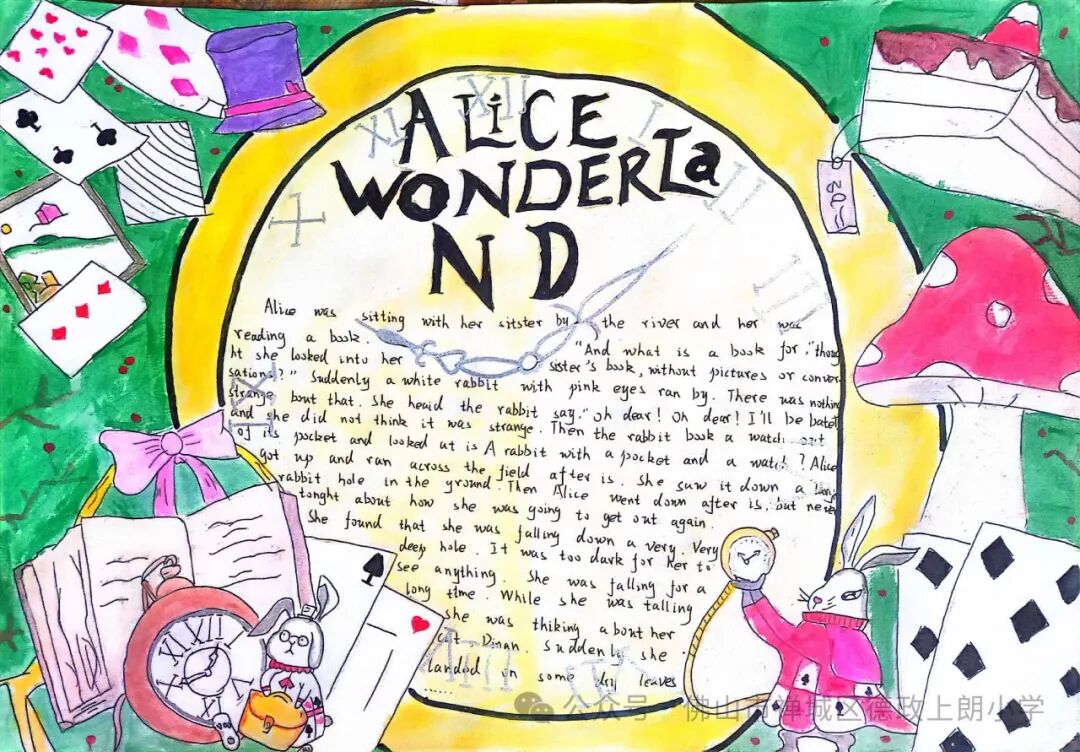 ALiCE
WONDERLa
ND
XII
I
XI
II
X
III
Alice was sitting with her sitster by the river and her was
reading a book. "And what is a book for,"thoug
ht she looked into her sister's book, without pictures or conver
sations?" Suddenly a white rabbit with pink eyes ran by. There was nothing
strange bout that. She heard the rabbit say." oh dear! Oh dear! I'll be
and she did not think it was strange. Then the rabbit book a watch out
of its pocket and looked at is A rabbit with a pocket and a watch? Alice
got up and ran across the field after is. She saw it down a
rabbit hole in the ground. Then Alice went down after is, but never
tonght about how she was going to get out again.
She found that she was falling down a very. Very
deep hole. It was too dark for her to
see anything. She was falling for a
long time. While she was talling
she was thiking about her
cat Dinan. Suddenly she
landod on some dry leaves
......
公众号 · 佛山市禅城区德政上朗小学